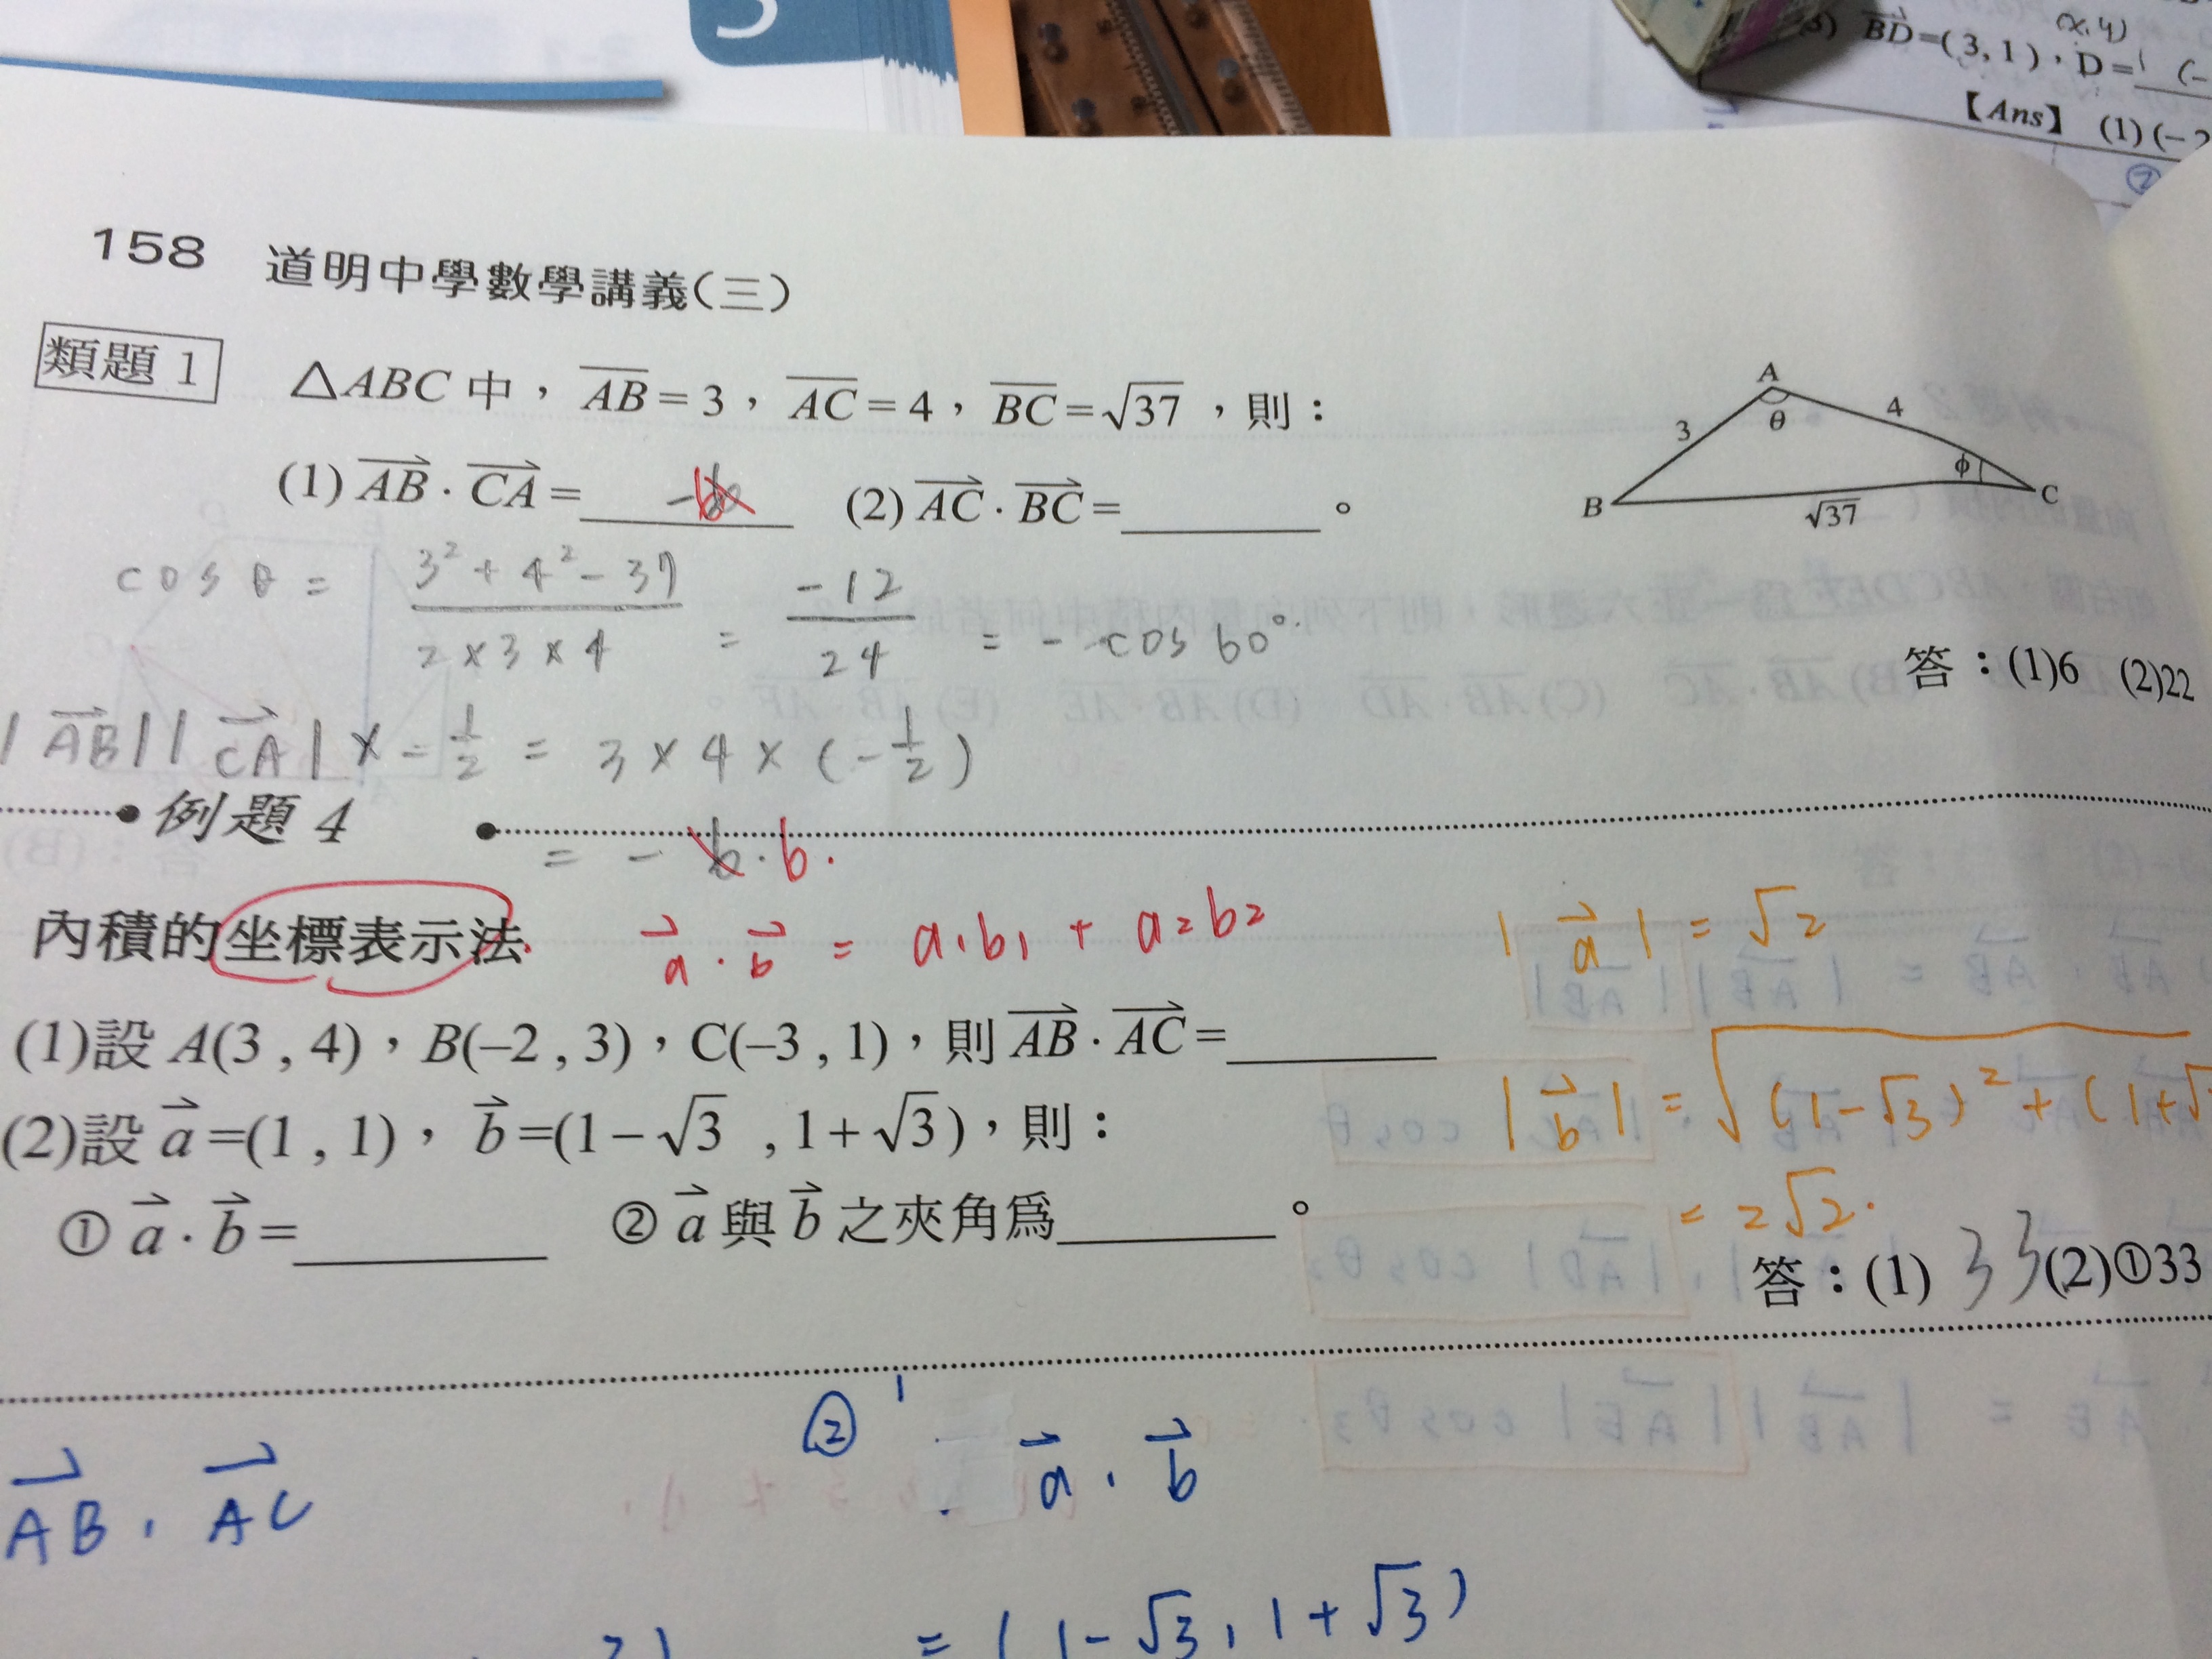 (3) BD=(3,1)，D=
(x,y)
【Ans】 (1)(-2
②
158 道明中學數學講義(三)
類題 1 △ABC 中，AB=3，AC=4，BC=√37，則：
(1) AB · CA= -6 (2) AC · BC= 。
A
θ
3
4
B
√37
φ
C
cos θ = (3² + 4² - 37)/(2×3×4) = -12/24 = - cos 60°
答：(1)6 (2)22
|AB||CA| × -1/2 = 3 × 4 × (-1/2)
例題 4
= - 6 · 6 ·
內積的坐標表示法
a · b = a₁b₁ + a₂b₂
|a| = √2
(1)設 A(3 , 4)，B(–2 , 3)，C(–3 , 1)，則 AB · AC=
(2)設 a=(1 , 1)，b=(1–√3 , 1+√3)，則：
|b| = √(1-√3)² + (1+√
= 2√2.
① a · b= ② a 與 b 之夾角爲 。
答：(1) 33 (2)①33
②
AB · AC
a · b
= (1-√3, 1+√3)